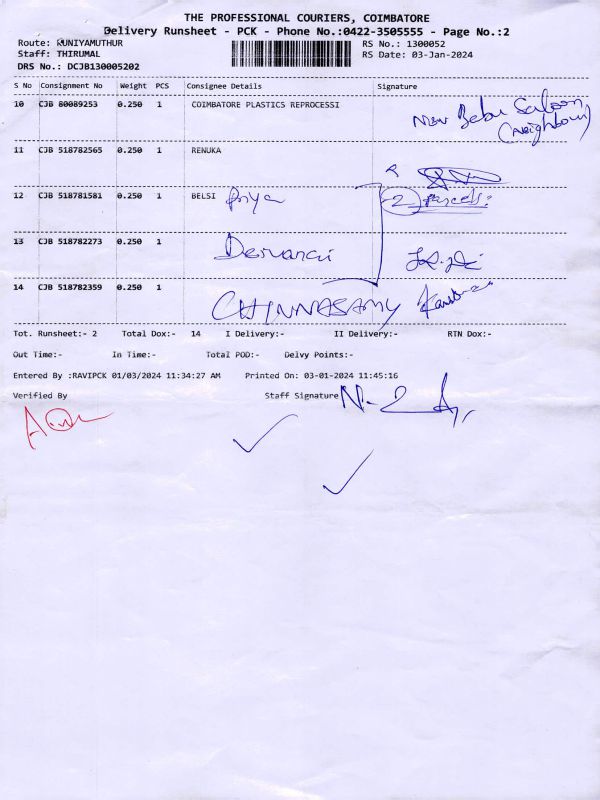 THE PROFESSIONAL COURIERS, COIMBATORE
Delivery Runsheet - PCK - Phone No.:0422-3505555 - Page No.:2
Route: KUNIYAMUTHUR RS No.: 1300052
Staff: THIRUMAL RS Date: 03-Jan-2024
DRS No.: DCJB130005202
S No Consignment No Weight PCS Consignee Details Signature
10 CJB 80089253 0.250 1 COIMBATORE PLASTICS REPROCESSI
Saloon
(Neighbour)
11 CJB 518782565 0.250 1 RENUKA
12 CJB 518781581 0.250 1 BELSI Priya 2
13 CJB 518782273 0.250 1
14 CJB 518782359 0.250 1 CHINNASAMY
Tot. Runsheet:- 2 Total Dox:- 14 I Delivery:- II Delivery:- RTN Dox:-
Out Time:- In Time:- Total POD:- Delvy Points:-
Entered By :RAVIPCK 01/03/2024 11:34:27 AM Printed On: 03-01-2024 11:45:16
Verified By Staff Signature